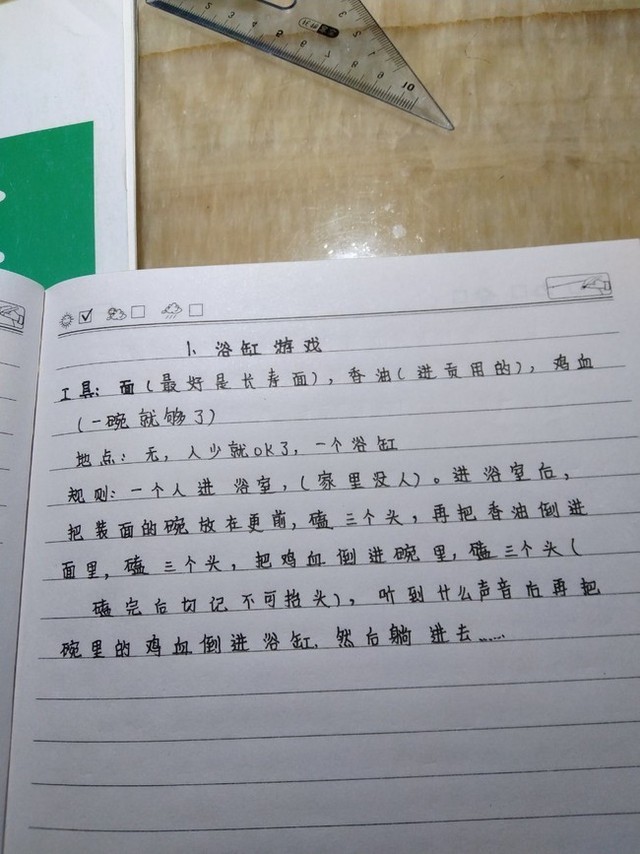 1. 浴缸游戏
工具：面（最好是长寿面），香油（进贡用的），鸡血
（一碗就够了）
地点：无，人少就ok了，一个浴缸
规则：一个人进浴室，（家里没人）。进浴室后，
把装面的碗放在更前，磕三个头，再把香油倒进
面里，磕三个头，把鸡血倒进碗里，磕三个头（
磕完后切记不可抬头），听到什么声音后再把
碗里的鸡血倒进浴缸，然后躺进去……